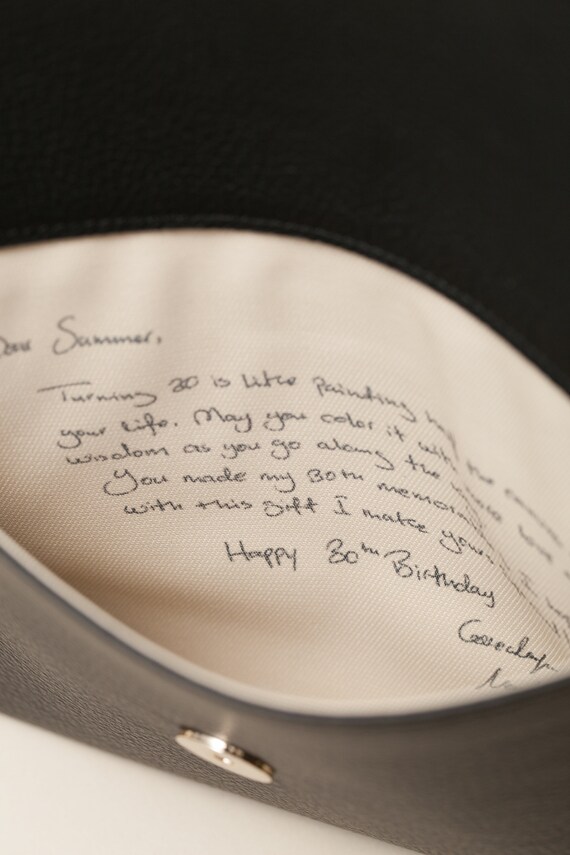 Dear Summer,
Turning 30 is like painting
your life. May you color it with the canvas
wisdom as you go along the
You made my 30th
with this gift I make yours
Happy 30th Birthday